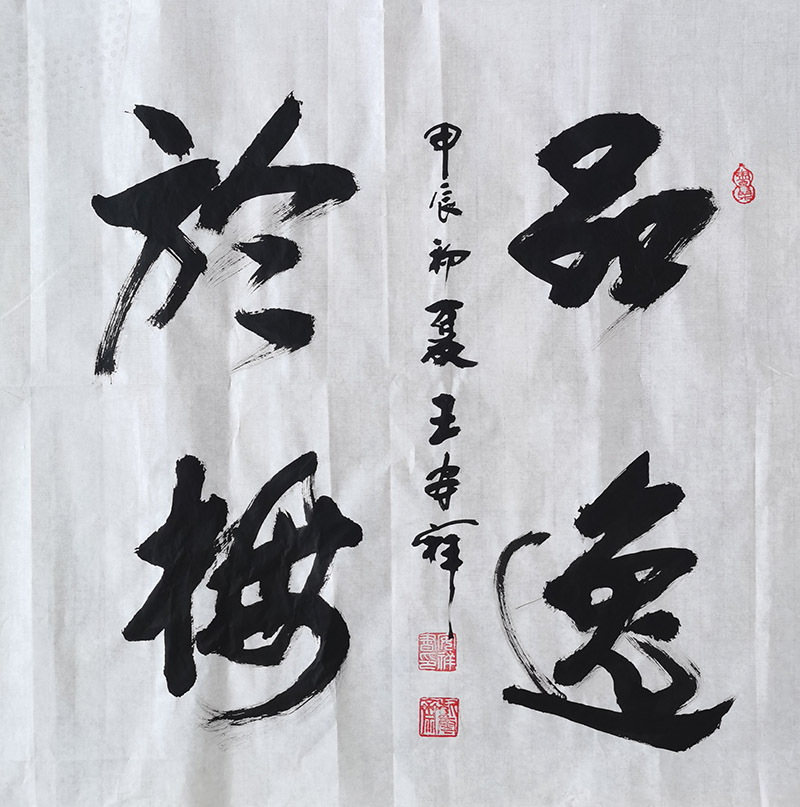 品逸
於梅
甲辰初夏王安祥